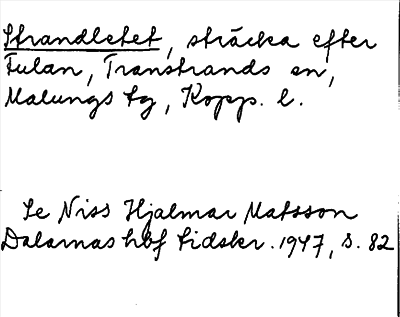 Strandletet, sträcka efter
Fulan, Transtrands sn,
Malungs tg, Kopp. l.
Se Niss Hjalmar Matsson
Dalarnas hbf tidskr. 1947, s. 82